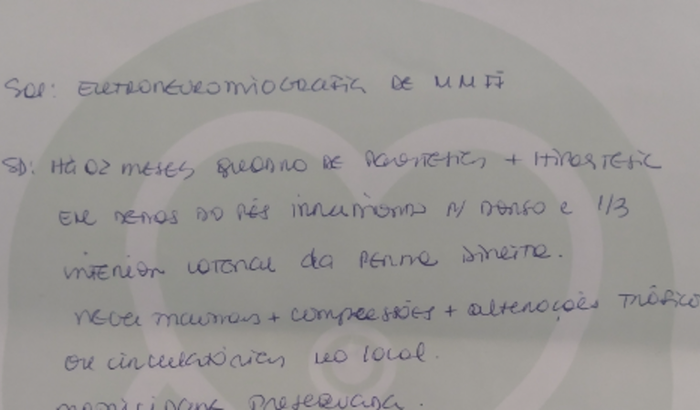 Sol: Eletroneuromiografia de MMII
SD: Há 02 meses quadro de parestesia + hipoestesia
em dedos do pés irradiando p/ dorso e 1/3
inferior lateral da perna direita.
nega traumas + compressões + alterações trófico
ou circulatórias no local.
motricidade preservada.